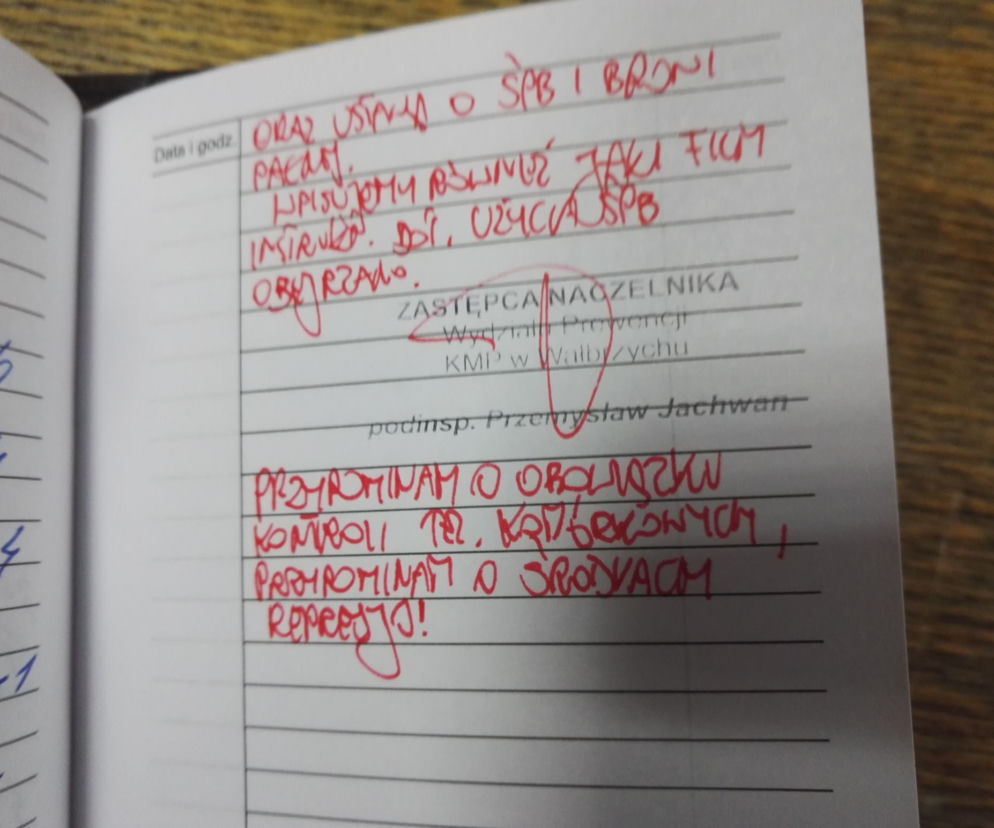 Data i godz.
ORAZ USTAWĄ O ŚPB I BRONI
PALNEJ.
WPISUJEMY RÓWNIEŻ JAKI FILM
INSTRUKT. DOT. UŻYCIA ŚPB
OBEJRZANO.
ZASTĘPCA NACZELNIKA
Wydziału Prewencji
KMP w Wałbrzychu
podinsp. Przemysław Jachwan
PRZYPOMINAM O OBOWIĄZKU
KONTROLI TER.
PRZYPOMINAM O ŚRODKACH
REPRESJI!